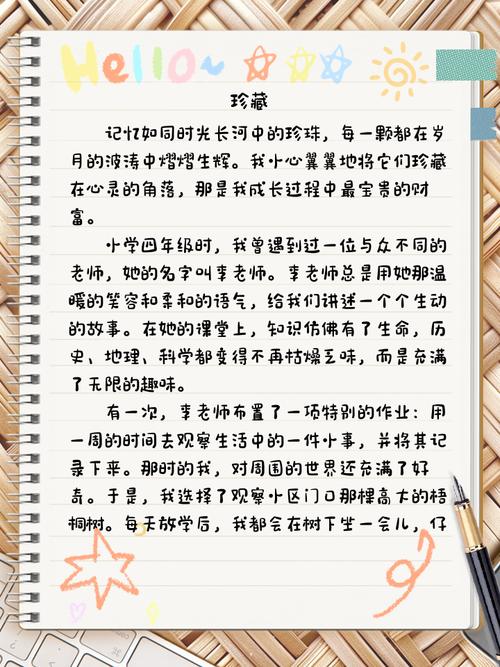 Hello~
珍藏
记忆如同时光长河中的珍珠，每一颗都在岁
月的波涛中熠熠生辉。我小心翼翼地将它们珍藏
在心灵的角落，那是我成长过程中最宝贵的财
富。
小学四年级时，我曾遇到过一位与众不同的
老师，她的名字叫李老师。李老师总是用她那温
暖的笑容和柔和的语气，给我们讲述一个个生动
的故事。在她的课堂上，知识仿佛有了生命，历
史、地理、科学都变得不再枯燥乏味，而是充满
了无限的趣味。
有一次，李老师布置了一项特别的作业：用
一周的时间去观察生活中的一件小事，并将其记
录下来。那时的我，对周围的世界还充满了好
奇。于是，我选择了观察小区门口那棵高大的梧
桐树。每天放学后，我都会在树下坐一会儿，仔